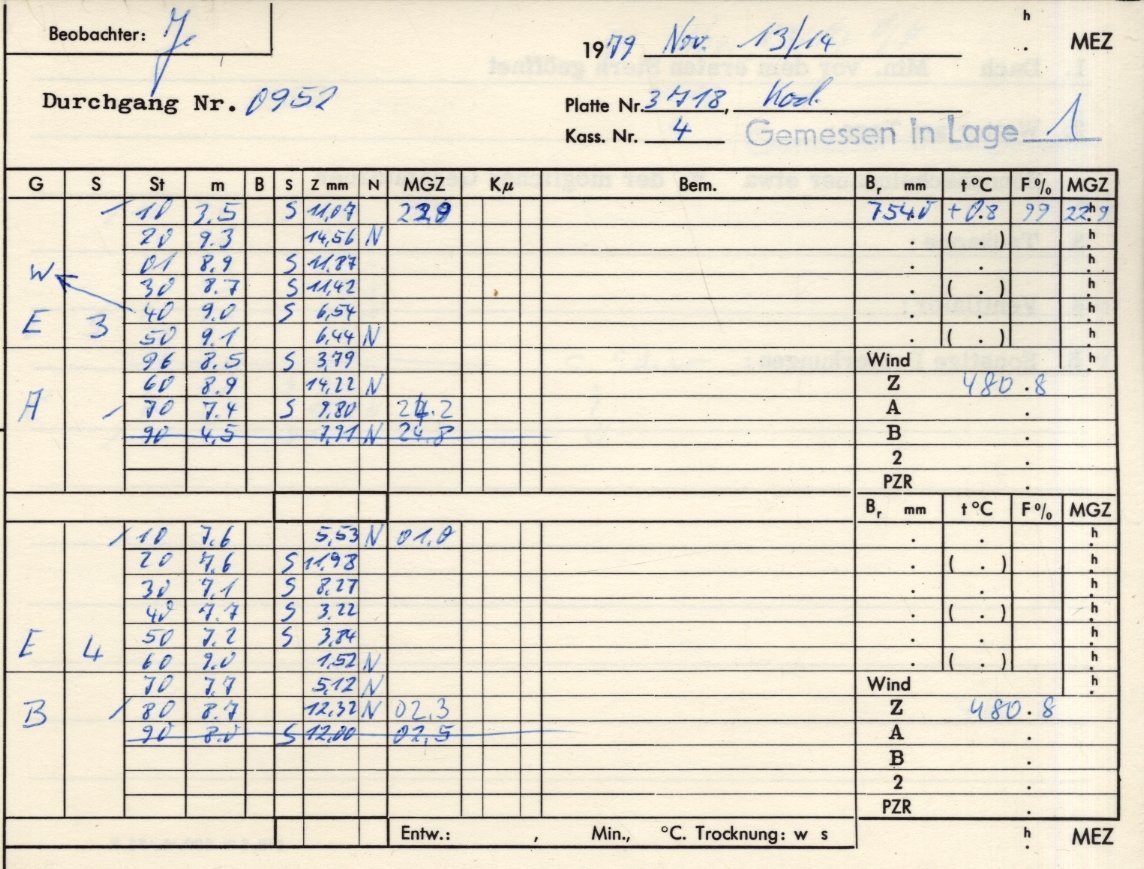 Beobachter: Je
h
1979 Nov. 13/14 . MEZ
Durchgang Nr. 0952
Platte Nr. 3718, Kod.
Kass. Nr. 4 Gemessen In Lage 1
G S St m B S Z mm N MGZ Kμ Bem. Br mm t °C F % MGZ
10 3.5 S 11,07 754 +0.8 99 22h9
20 9.3 14,56 N . ( . ) h
01 8.9 S 11.87 . . h
W 30 8.7 S 11,42 . ( . ) h
40 9.0 S 6,54 . . h
E 3 50 9.1 6,44 N . ( . ) h
96 8.5 S 3,79 Wind h
60 8.9 14,22 N Z 480.8
A 70 7.4 S 9,80 24.2 A .
90 4,5 7,91 N 24.8 B .
2 .
PZR .
Br mm t °C F % MGZ
10 7.6 5,53 N 01,0 . . h
20 7,6 S 11,98 . ( . ) h
30 7,1 S 8,27 . . h
40 7.7 S 3,22 . ( . ) h
50 7.2 S 3,84 . . h
E 4 60 9.0 1,52 N . ( . ) h
70 7,7 5,12 N Wind h
B 80 8.7 12,32 N 02,3 Z 480.8
90 8.0 S 12,00 02,5 A .
B .
2 .
PZR .
Entw.: , Min., °C. Trocknung: w s h MEZ